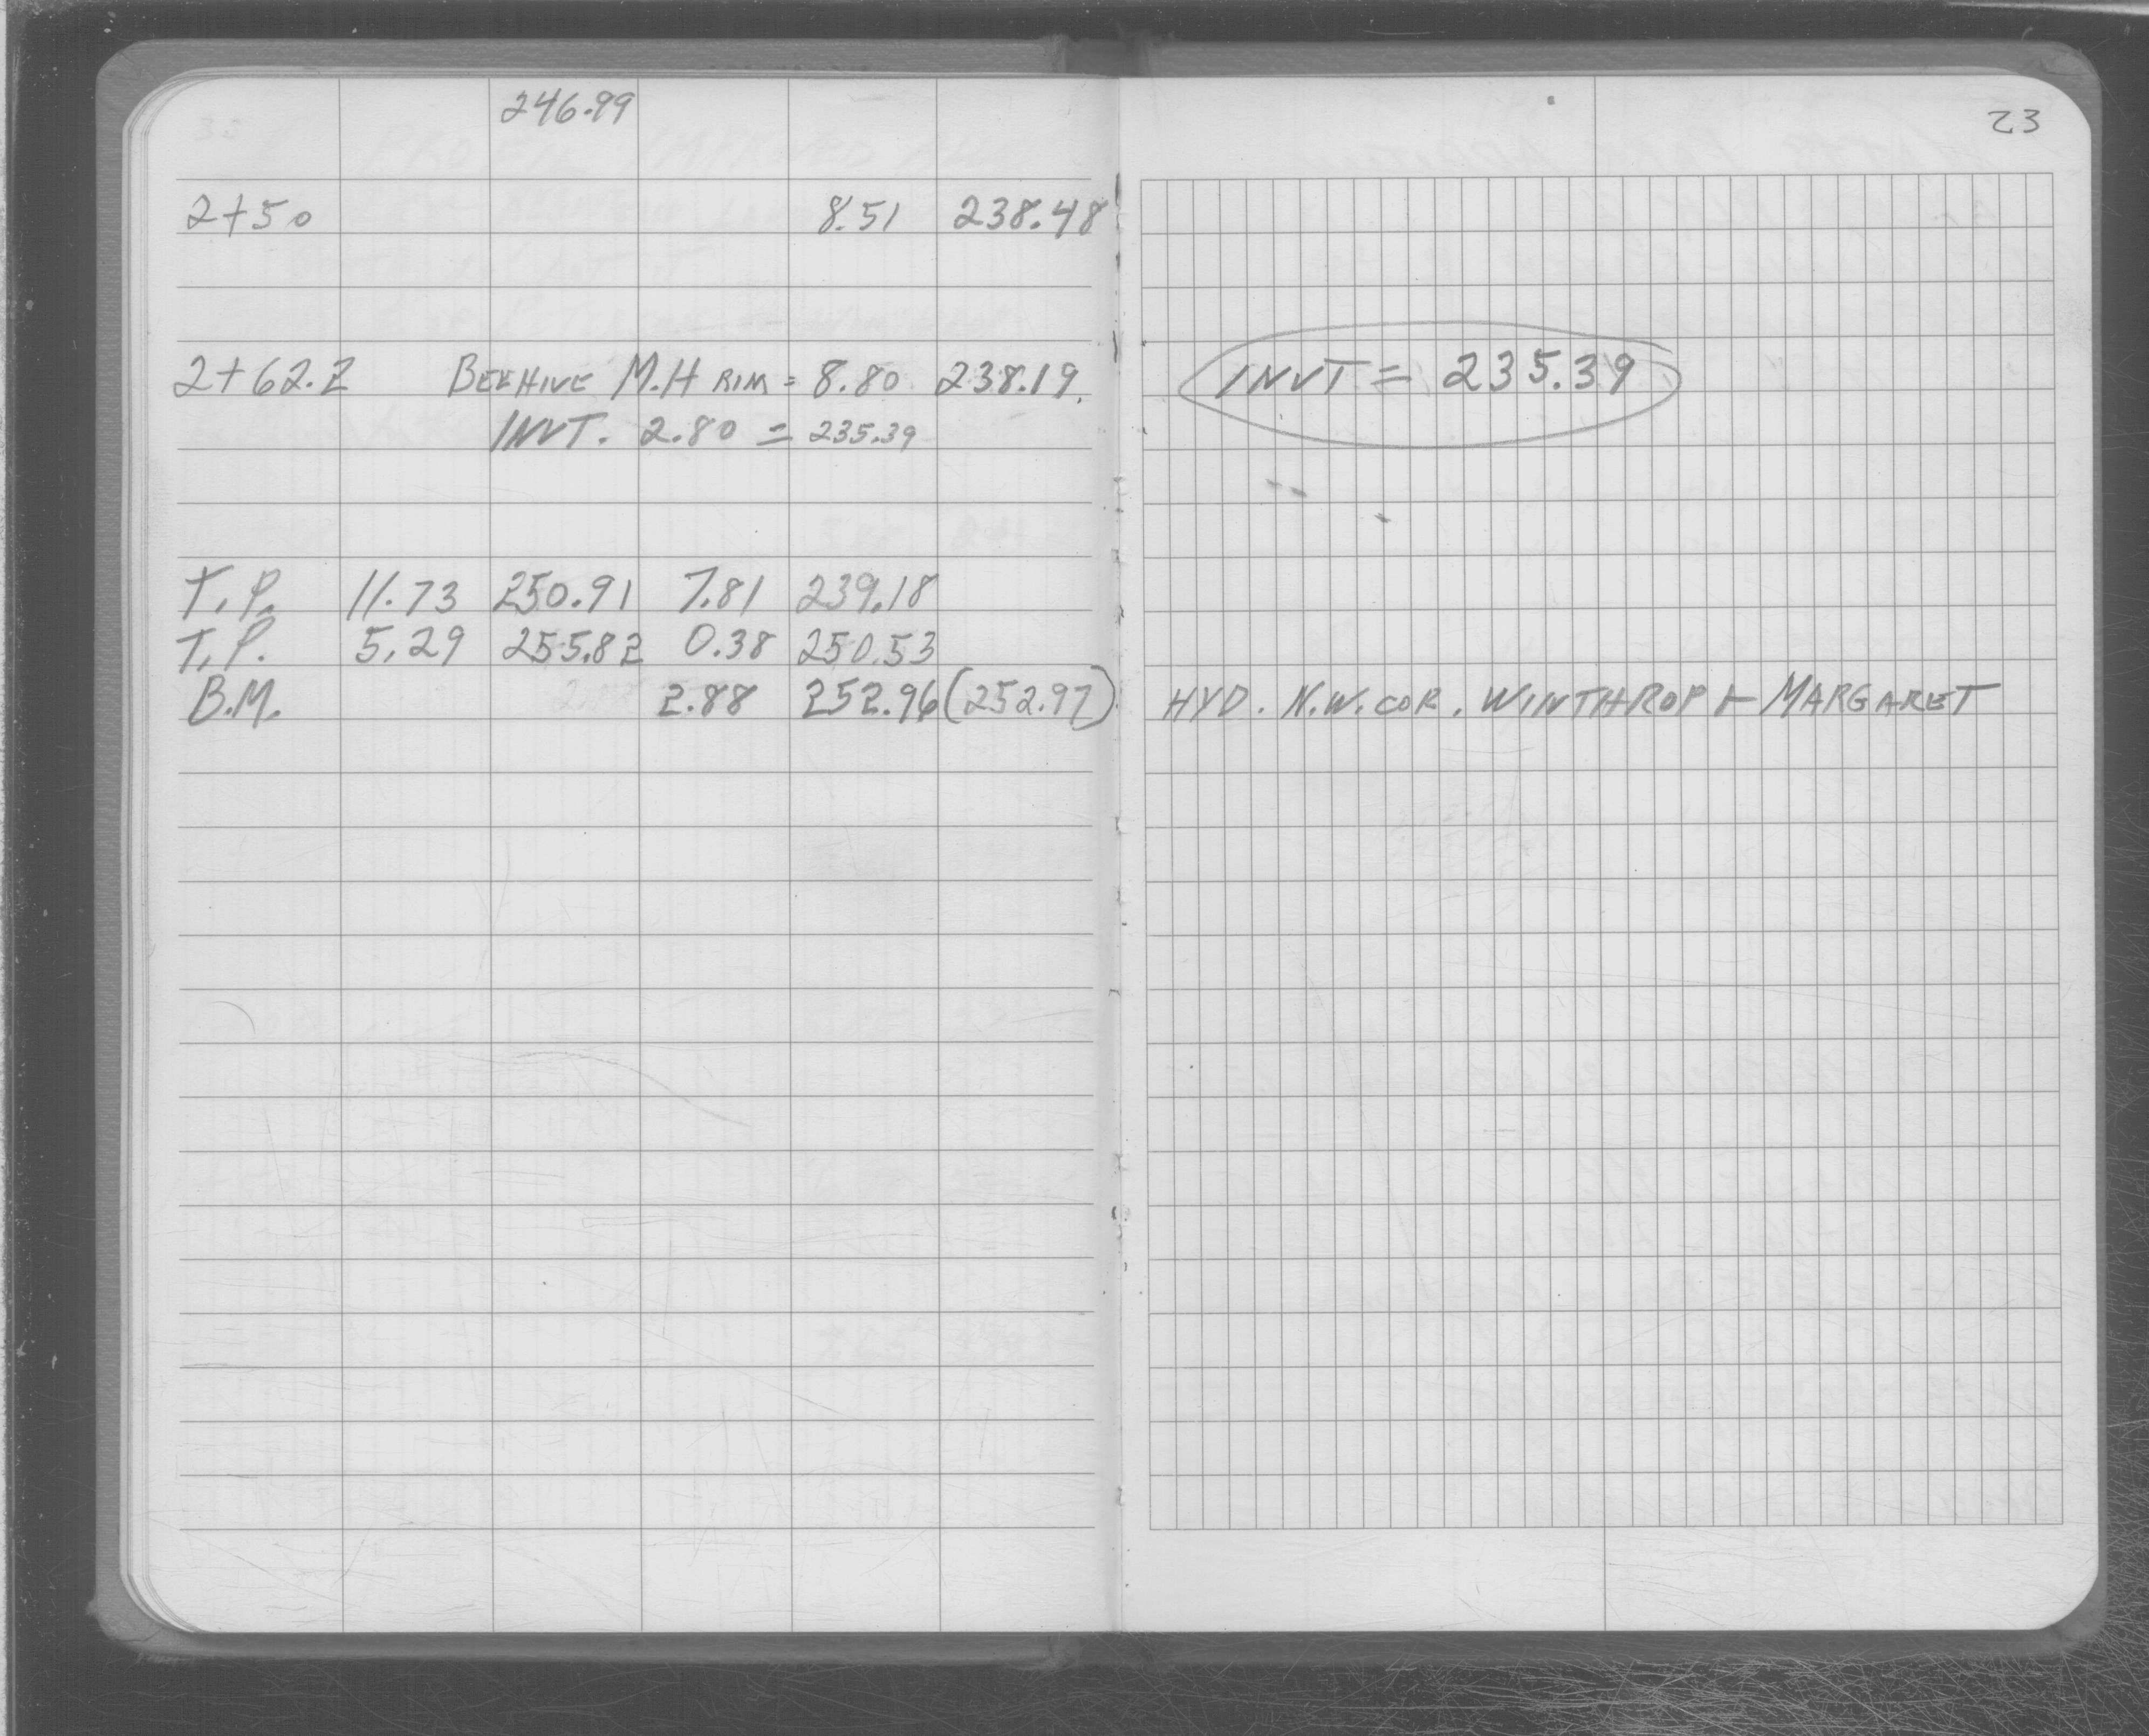 246.99
23
2+50 8.51 238.48
2+62.2 BEEHIVE M.H RIM = 8.80 238.19.
INVT = 235.39
INVT. 2.80 = 235.39
T.P. 11.73 250.91 7.81 239.18
T.P. 5.29 255.82 0.38 250.53
B.M. 2.88 252.96 (252.97) HYD. N.W. COR. WINTHROP & MARGARET